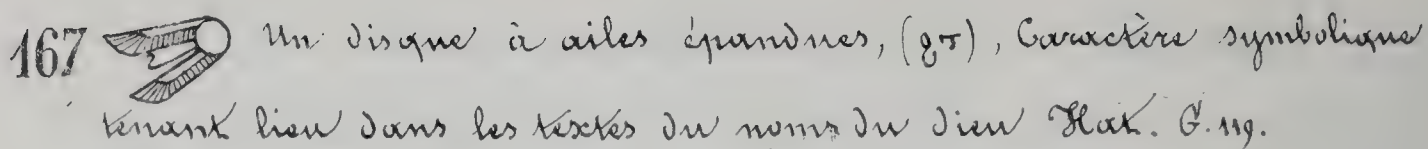 167 Un disque à ailes épandues, (ϩτ), Caractère symbolique
tenant lieu dans les textes du noms du dieu Hat. G. 119.